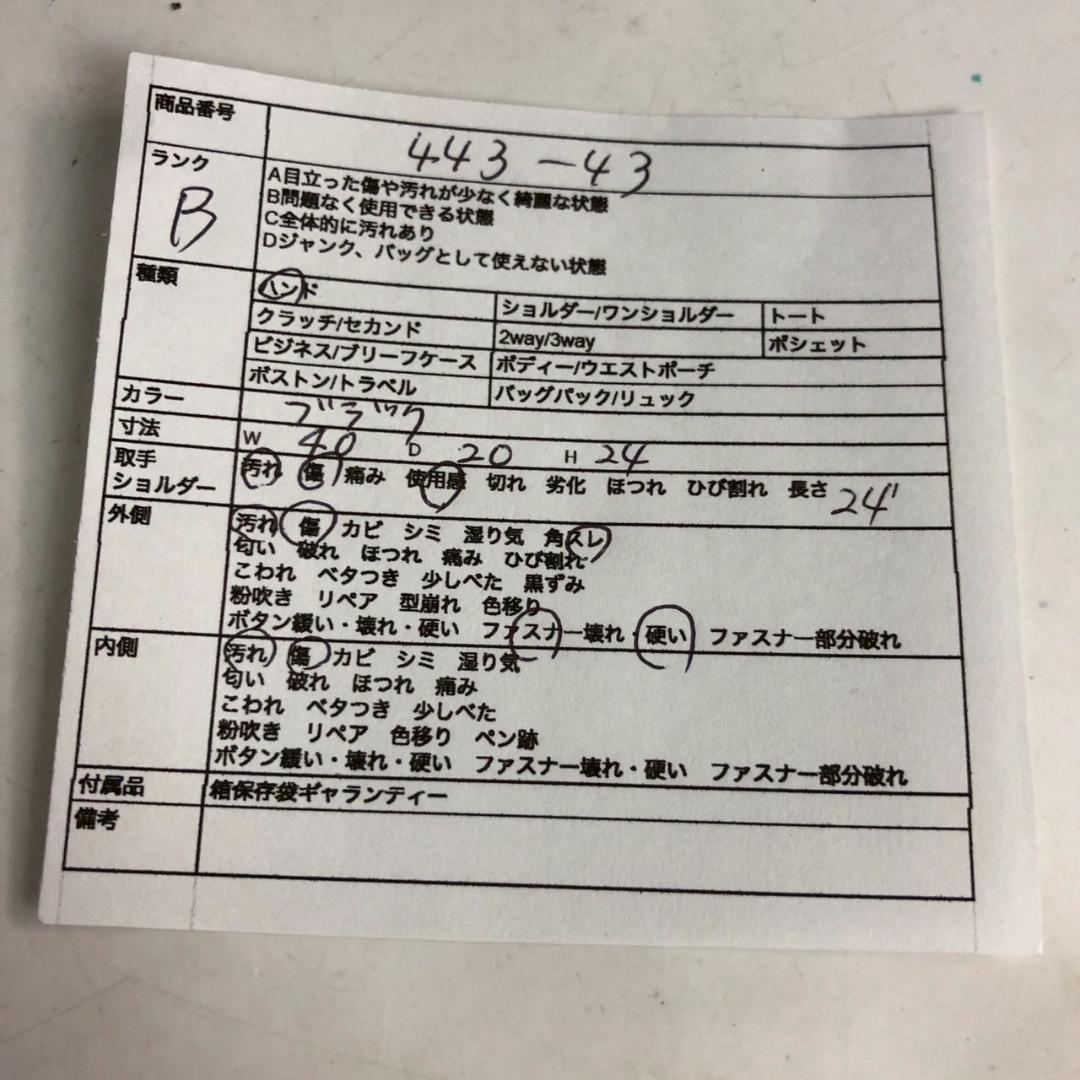 商品番号 443-43
ランク B
A目立った傷や汚れが少なく綺麗な状態
B問題なく使用できる状態
C全体的に汚れあり
Dジャンク、バッグとして使えない状態
種類
ハンド ショルダー/ワンショルダー トート
クラッチ/セカンド 2way/3way ポシェット
ビジネス/ブリーフケース ボディー/ウエストポーチ
ボストン/トラベル バッグパック/リュック
カラー ブラック
寸法 W 40 D 20 H 24
取手
ショルダー
汚れ 傷 痛み 使用感 切れ 劣化 ほつれ ひび割れ 長さ 24
外側
汚れ 傷 カビ シミ 湿り気 角スレ
匂い 破れ ほつれ 痛み ひび割れ
こわれ ベタつき 少しべた 黒ずみ
粉吹き リペア 型崩れ 色移り
ボタン緩い・壊れ・硬い ファスナー壊れ・硬い ファスナー部分破れ
内側
汚れ 傷 カビ シミ 湿り気
匂い 破れ ほつれ 痛み
こわれ ベタつき 少しべた
粉吹き リペア 色移り ペン跡
ボタン緩い・壊れ・硬い ファスナー壊れ・硬い ファスナー部分破れ
付属品 箱保存袋ギャランティー
備考